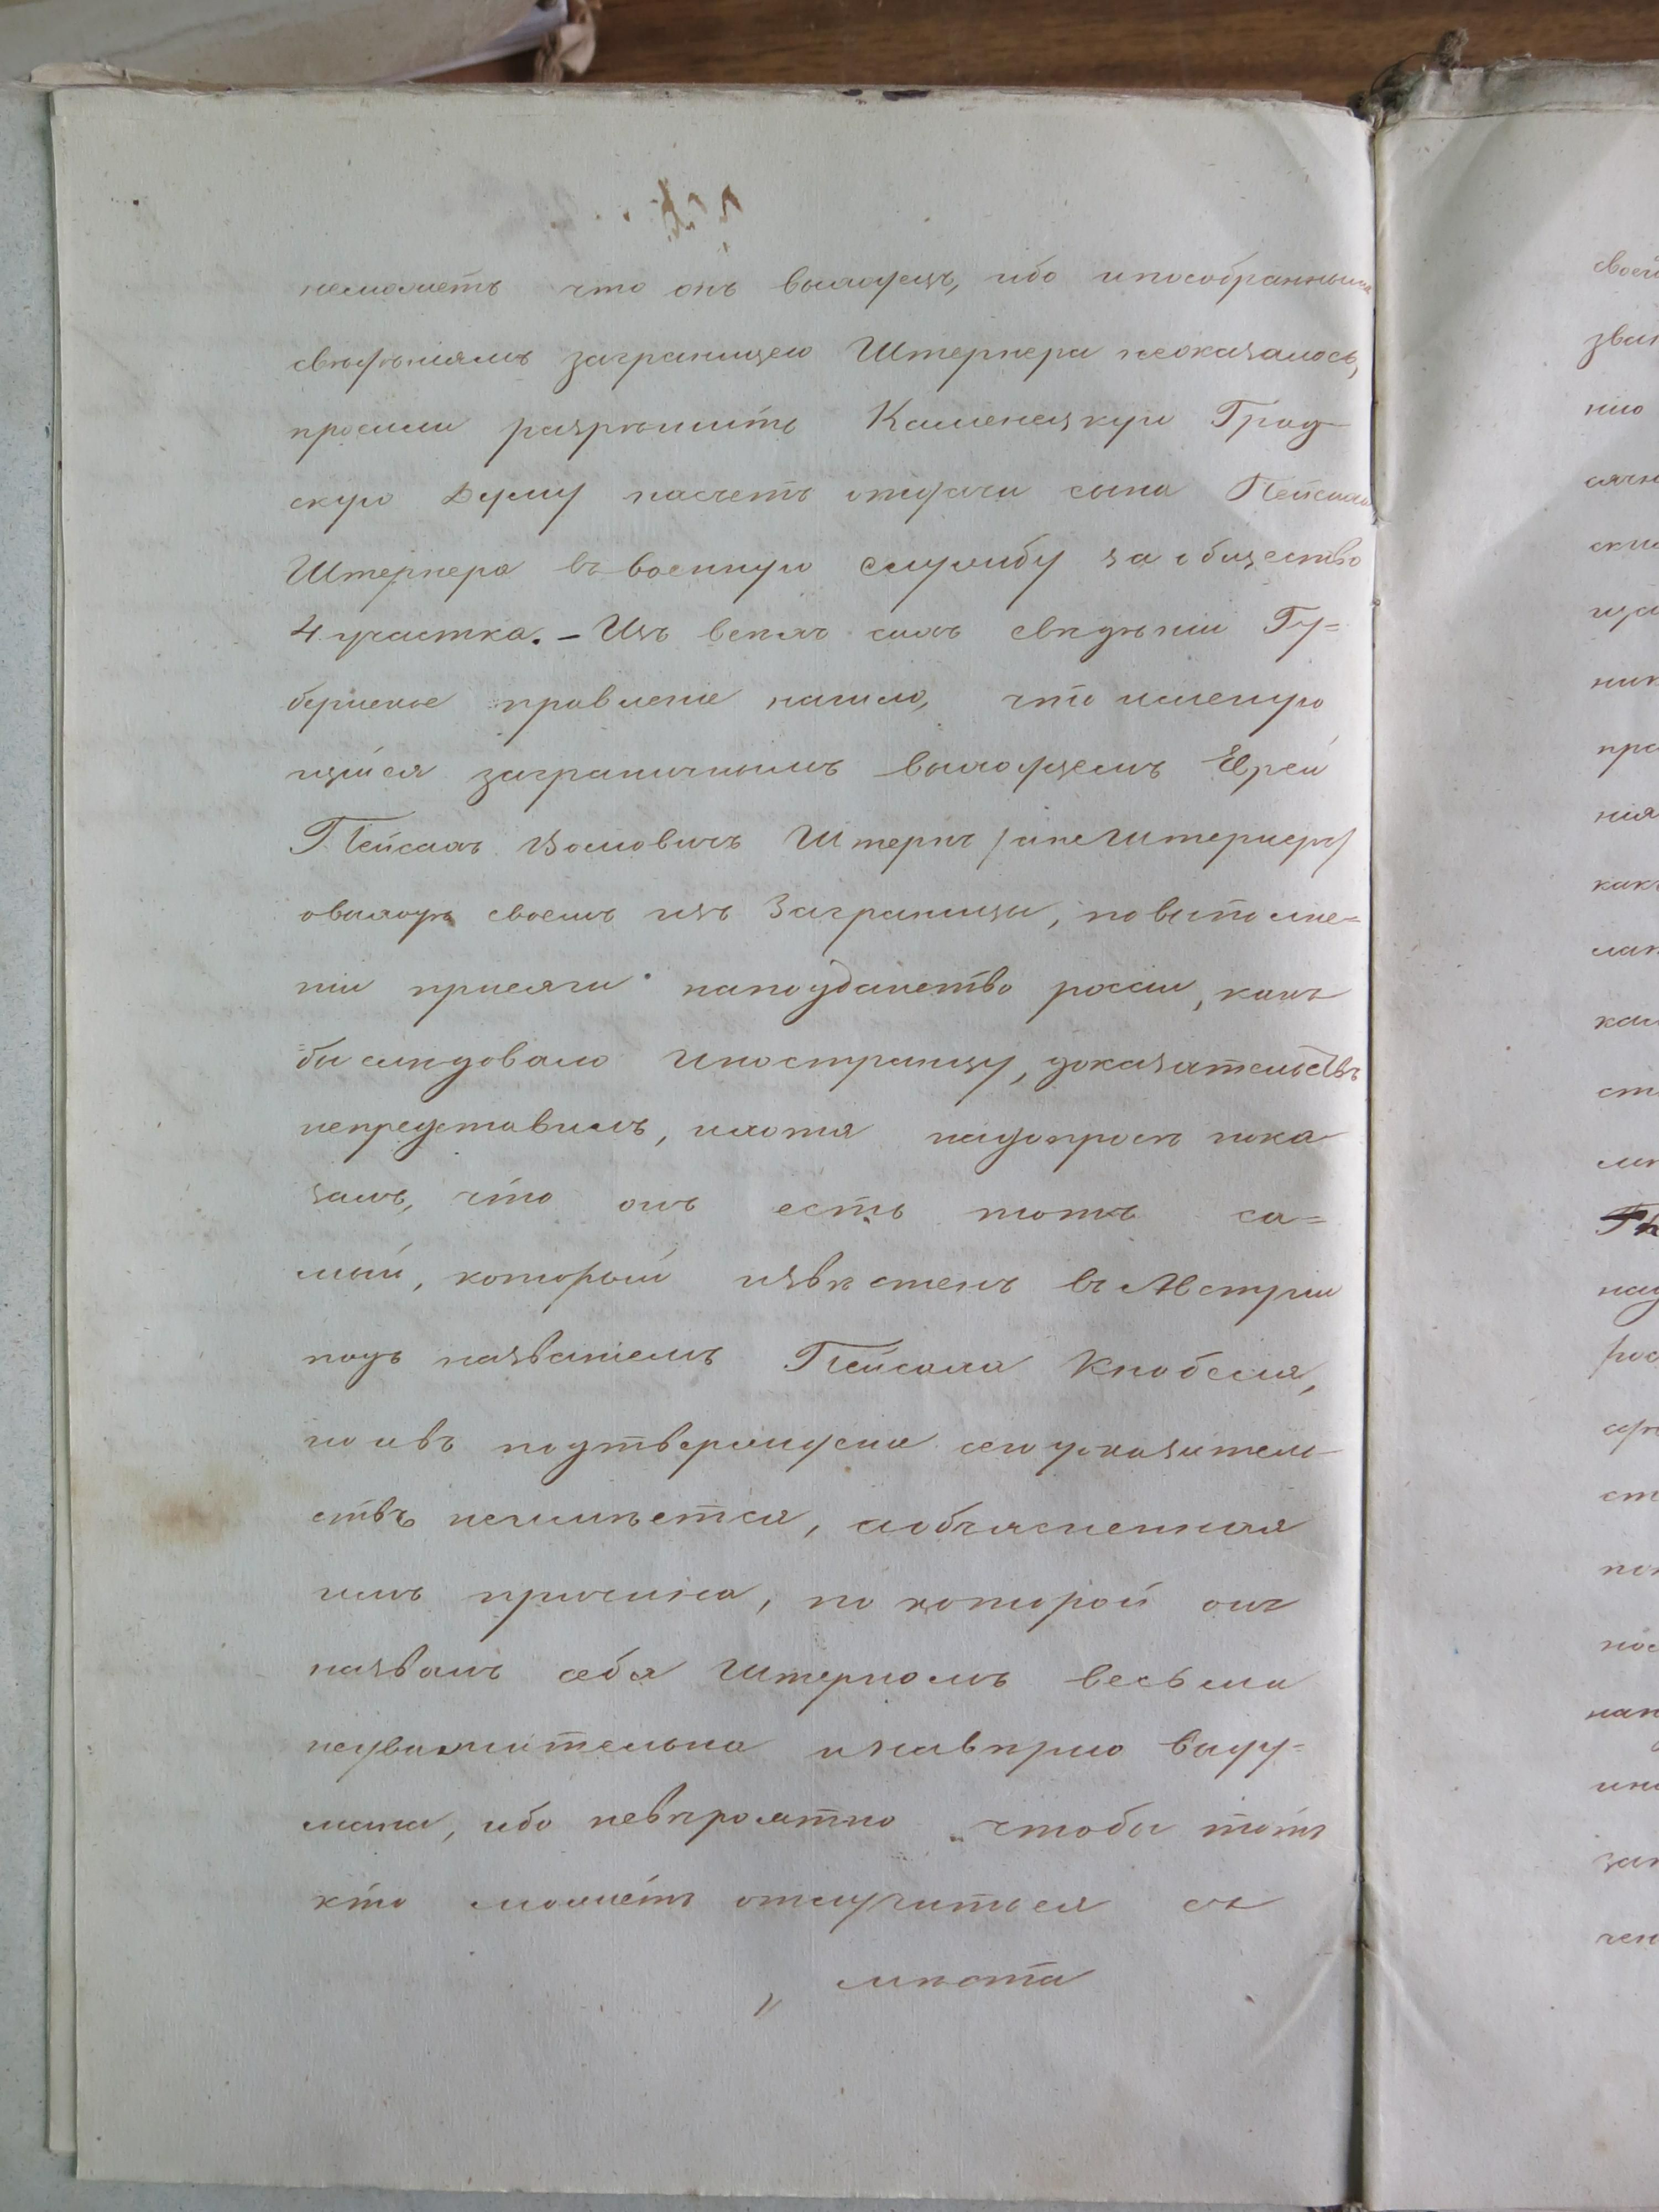 неможетъ что онъ выходецъ, ибо ипособраннымъ
свѣденіямъ заграницею Штернера неоказалось,
просили разрѣшить Каменецкую Град
скую Думу насчетъ отдачи сына Пейсаха
Штернера въ военную службу за общество
4 участка. – Изъ всехъ сихъ свѣдѣній Гу=
бернское правленіе нашло, что именую
щійся заграничнымъ выходцемъ Еврей
Пейсахъ Волковичъ Штернъ /онже Штернеръ/
овыходѣ своемъ изъ Заграницы, по выполне=
ніи присяги наподданство россіи, какъ
бы слѣдовало Иностранцу, доказательствъ
непредставилъ, ихотя надопросѣ пока
залъ, что онъ есть тотъ са=
мый, который извѣстенъ въ Австріи
подъ названіемъ Пейсаха Кнобеля,
но ивъ подтвержденіе сего доказатель
ствъ неимѣется, аобъясненная
имъ причина, по которой онъ
назвалъ себя Штерномъ весьма
неуважительна инавѣрно выду=
мана, ибо невѣроятно чтобы тотъ
кто можетъ отлучиться съ
мѣста
своей
зван
нію
ник
пра
нія
какъ
зак